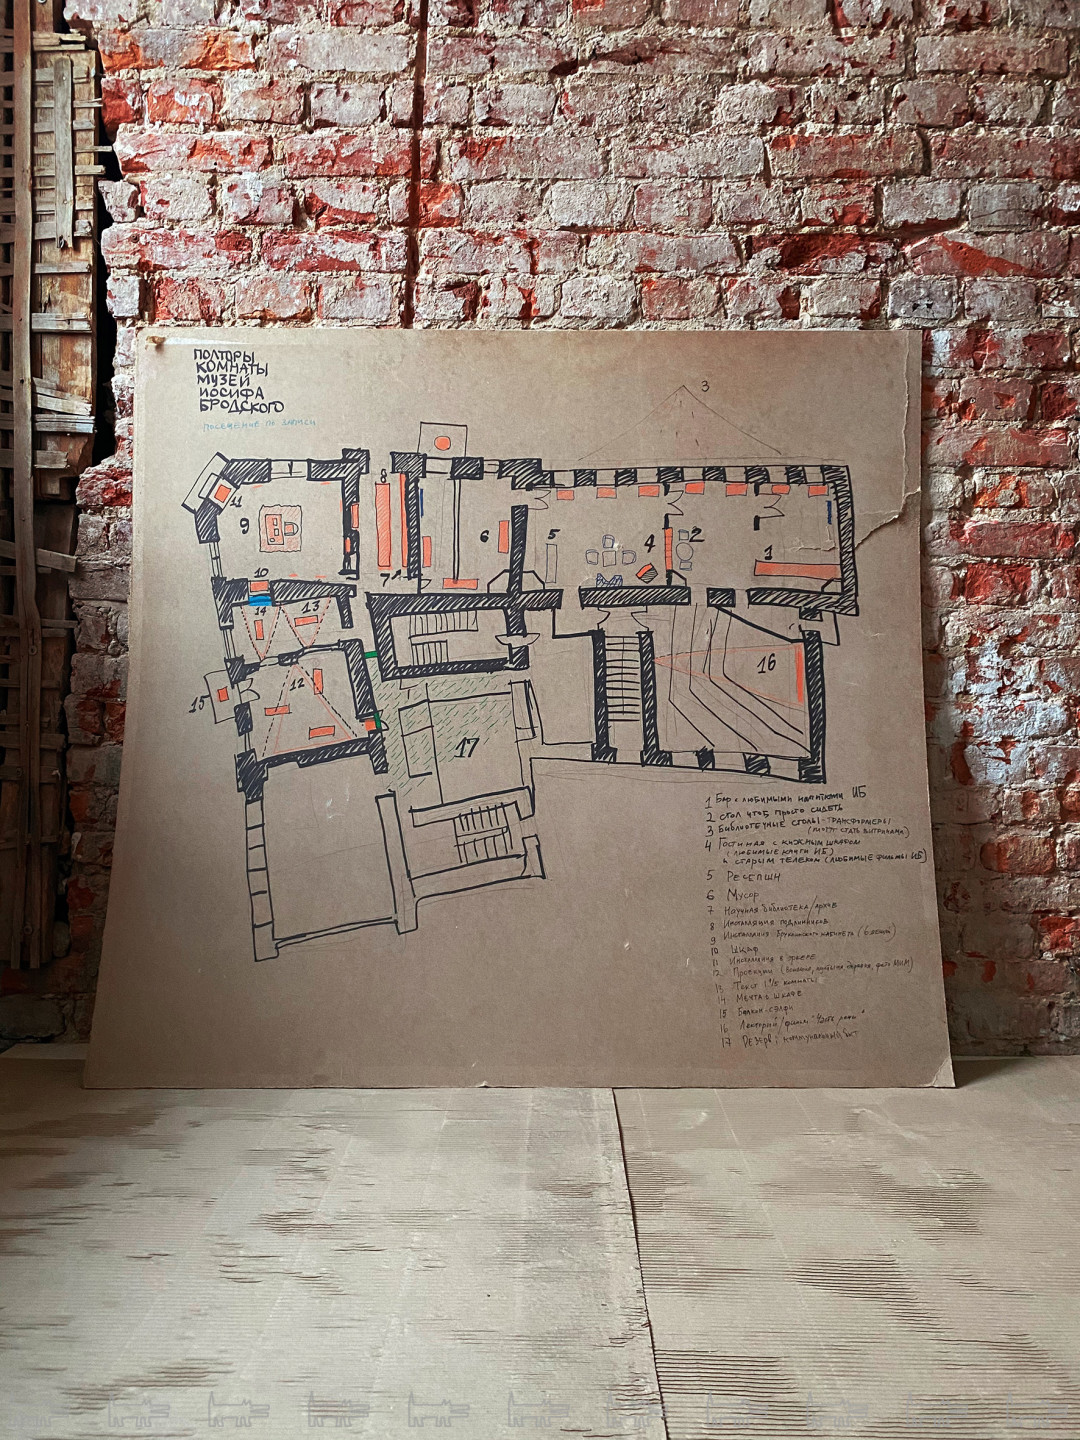 ПОЛТОРЫ
КОМНАТЫ
МУЗЕЙ
ИОСИФА
БРОДСКОГО
ПОСЕЩЕНИЕ ПО ЗАПИСИ
3
8
11
9
6
5
4
2
1
7
10
14
13
12
15
16
17
1 Бар с любимыми напитками ИБ
2 стол чтоб просто сидеть
3 Библиотечные столы-трансформеры
(могут стать витринами)
4 Гостиная с книжным шкафом
(любимые книги ИБ)
и старым телеком (любимые фильмы ИБ)
5 Ресепшн
6 Мусор
7 Научная библиотека/архив
8 Инсталляция подлинников
9 Инсталляция Бруклинского кабинета
10 Шкаф
11 Инсталляция в эркере
12 Проекции
13 Текст (1/5 комнаты
14 Мечта о шкафе
15 Балкон-селфи
16 Лекторий/фильм
17 Резерв: коммунальный